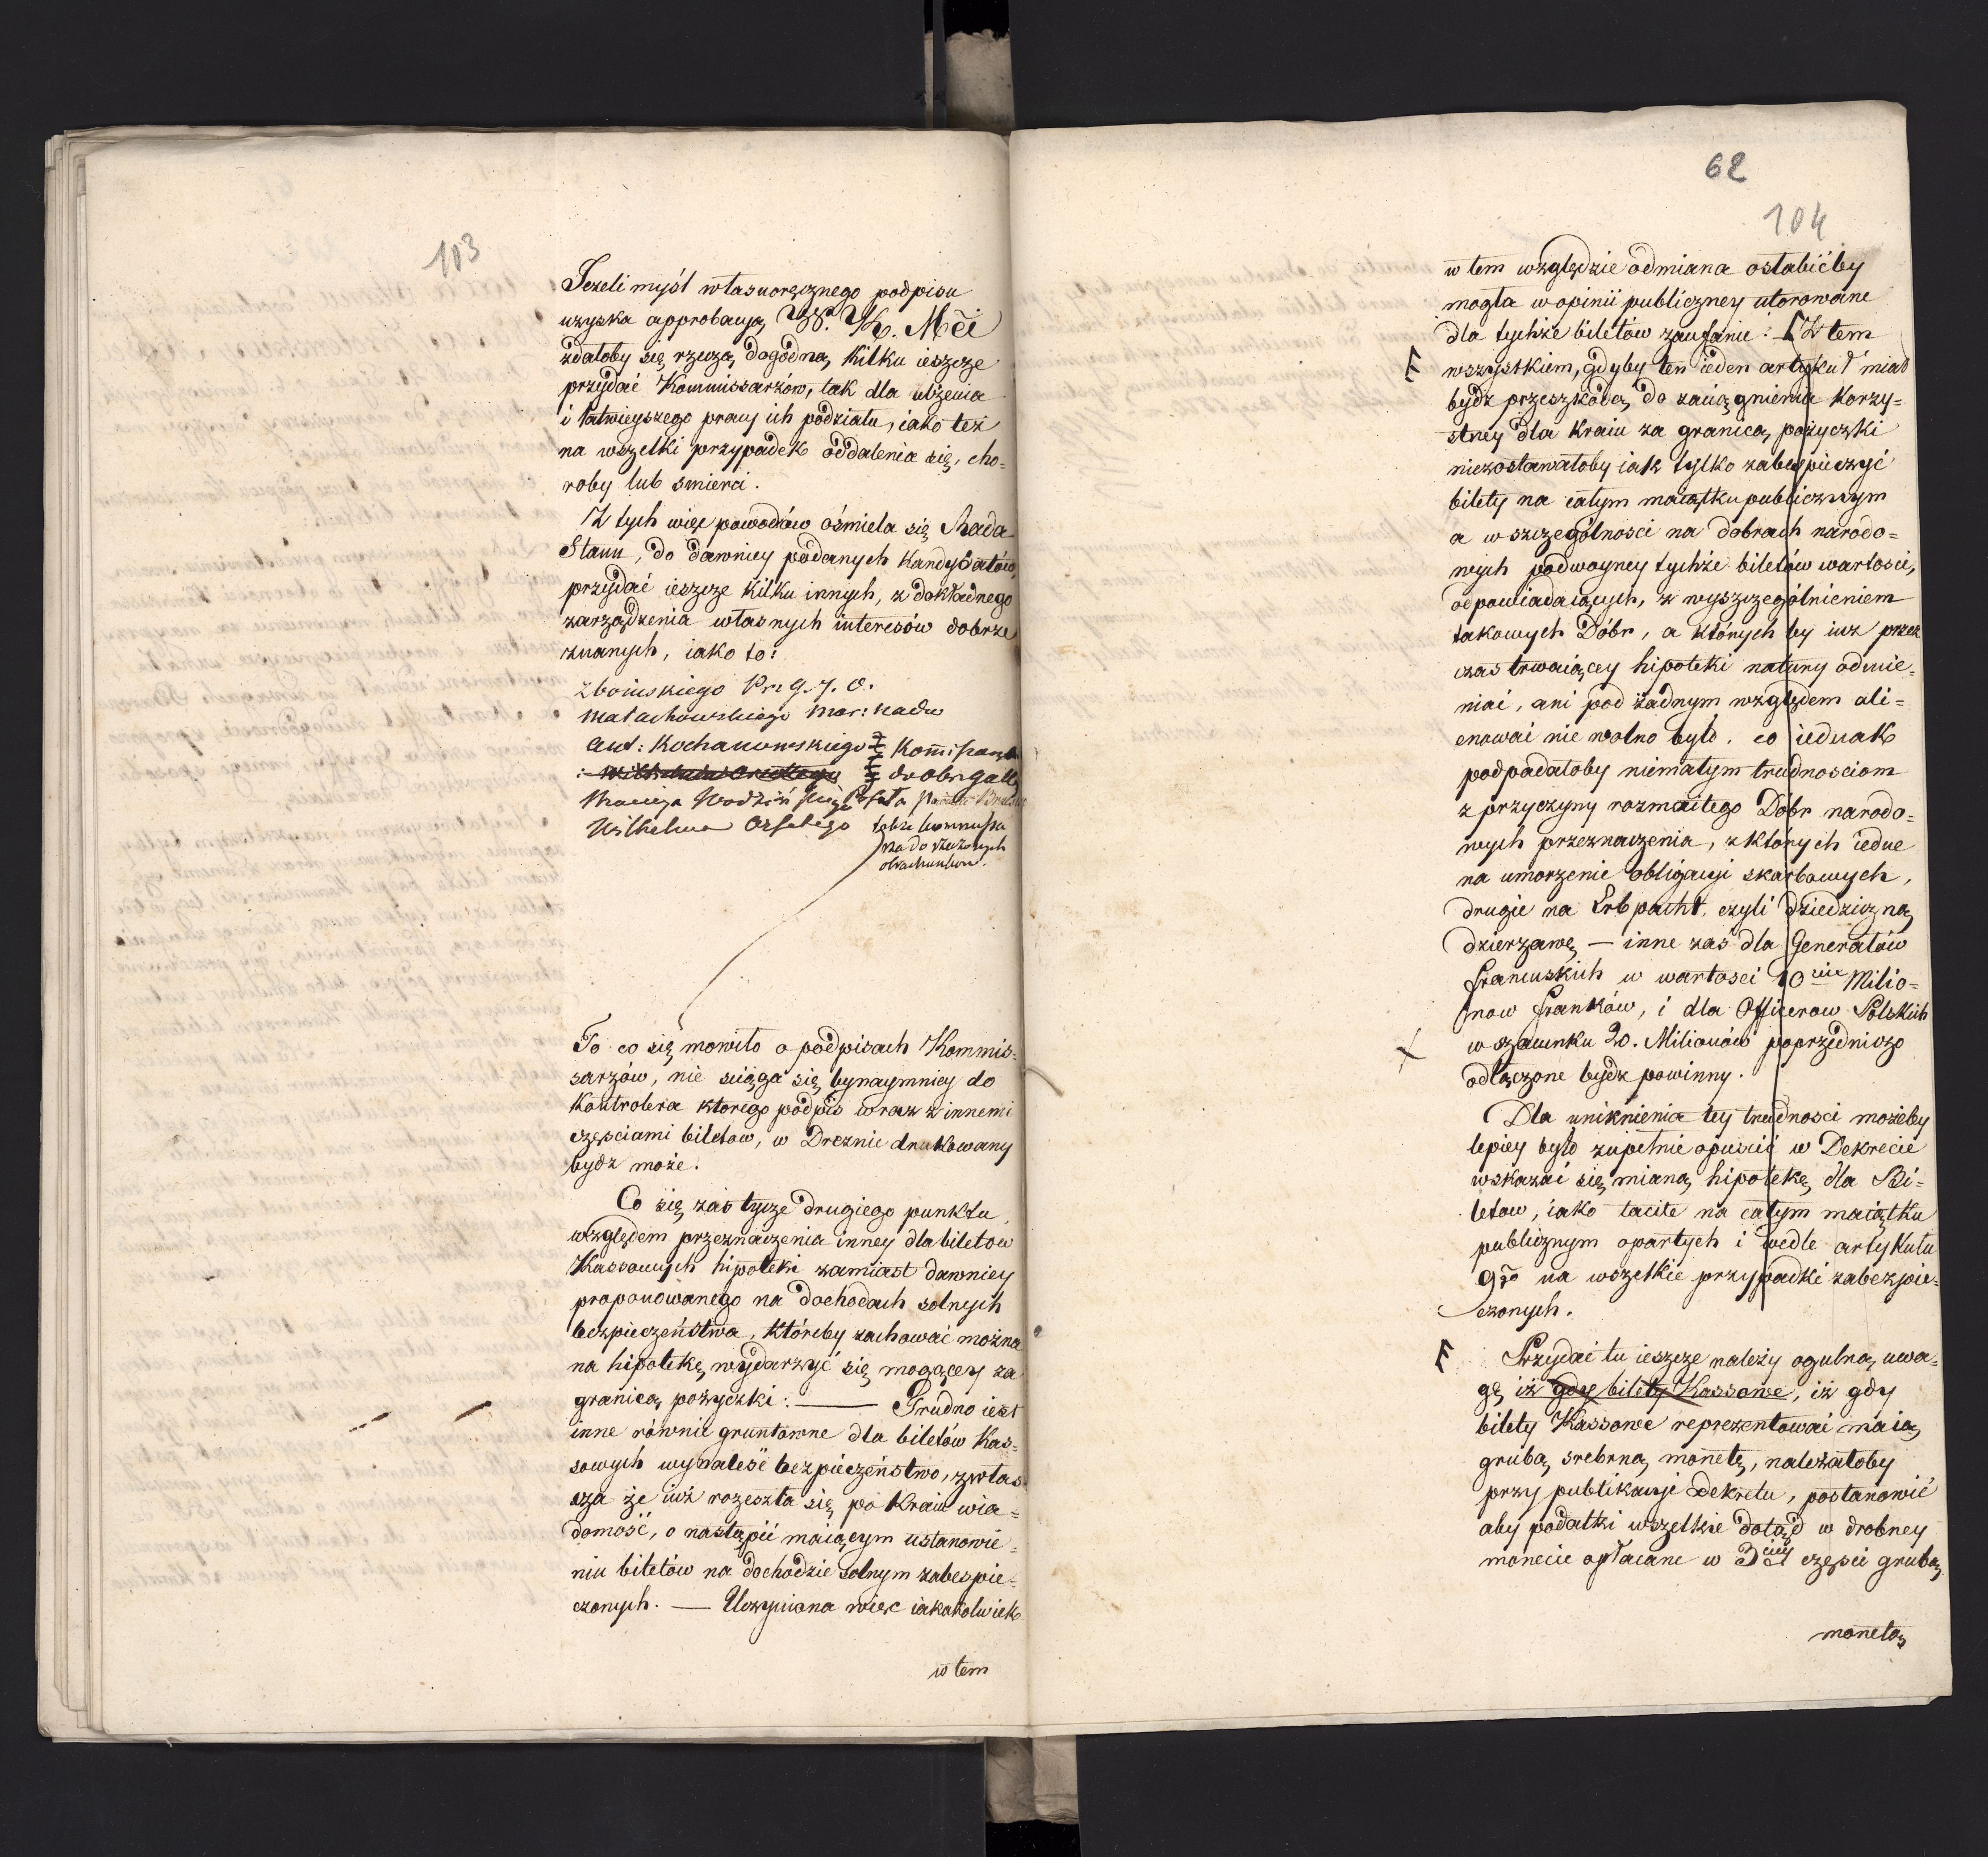 103
Jezeli myśl własnoręcznego podpisu
uzyska approbacyą W. K. Mći
zdałoby się rzeczą dogodną, kilku ieszcze
przydać Kommissarzów, tak dla ulżenia
i łatwieyszego pracy ich podziału, iako też
na wszelki przypadek oddalenia się, cho=
roby lub smierci.
Z tych więc powodów ośmiela się Rada
Stanu, do dawniey podanych Kandydatów,
przydać ieszcze kilku innych, z dokładnego
zarządzenia własnych interesów dobrze
znanych, iako to:
Zboinskiego Pr: 9. 7. O.
Małachowskiego Mar:
Ant: Kochanowskiego Kom̄issarza
do obr: Gall
Macieja Wodziń
Wilhelma Orsetego także kommissa
rza do
obrachunków.
To co się mowiło o podpisach Kommis=
sarzów, nie sciąga się bynaymniey do
Kontrolera ktorego podpis wraz z innemi
częsciami biletow, w Dreznie drukowany
bydz może.
Co się zaś tycze drugiego punktu
względem przeznaczenia inney dla biletow
Kassowych hipoteki zamiast dawniey
proponowanego na dochodach solnych
bezpieczeństwa, któreby zachować można
na hipotekę wydarzyć się mogącey za
granicą pożyczki: — Trudno iest
inne równie gruntowne dla biletów Kas=
sowych wynalesć bezpieczeństwo, zwłas
cza że iuż rozeszła się po Kraiu wia=
domość, o nastąpić maiącym ustanowie=
niu biletów na dochodzie solnym zabespie=
czonych. — Uczyniona więc iakakolwiek
w tem
62
104
w tem względzie odmiana osłabićby
mogła w opinii publiczney utorowane
dla tychże biletów zaufanie: [Z tem
wszystkiem, gdyby ten ieden artykuł miał
bydź przeszkodą do zaciągnienia korzy=
stney dla Kraiu za granicą pożyczki
niezostawałoby iak tylko zabespieczyć
bilety na całym maiątku publicznym
a w szczegolnosci na dobrach narodo=
wych podwoyney tychże biletów wartosci,
odpowiadaiących, z wyszczególnieniem
takowych Dóbr, a których by iuż przez
czas trwaiącey hipoteki natury odmie=
niać, ani pod żadnym względem ali=
enować nie wolno było. co iednak
podpadałoby niemałym trudnosciom
z przyczyny rozmaitego Dóbr narodo=
wych przeznaczenia, z których iedne
na umorzenie obligacyi skarbowych,
drugie na Erbpacht czyli dziedziczną
dzierzawę — inne zaś dla Generałów
francuskich w wartosci 10ciu Milio=
now franków, i dla Officerow Polskich
w szacunku 20. Milionów poprzedniczo
odłączone bydz powinny.
Dla uniknienia tey trudnosci możeby
lepiey było zupełnie opuscić w Dekrecie
wskazać się mianą hipotekę dla Bi=
letow, iako tacite na całym maiątku
publicznym opartych i wedle artykułu
9go na wszelkie przypadki zabezpie=
czonych.
Przydać tu ieszcze należy ogulną uwa=
gę iż gdy bilety Kassowe, iż gdy
bilety Kassowe reprezentować maią
grubą srebrną monetę, należałoby
przy publikacyi Dekretu, postanowić
aby podatki wszelkie dotąd w drobney
monecie opłacane w 3ciey częsci grubą
monetą